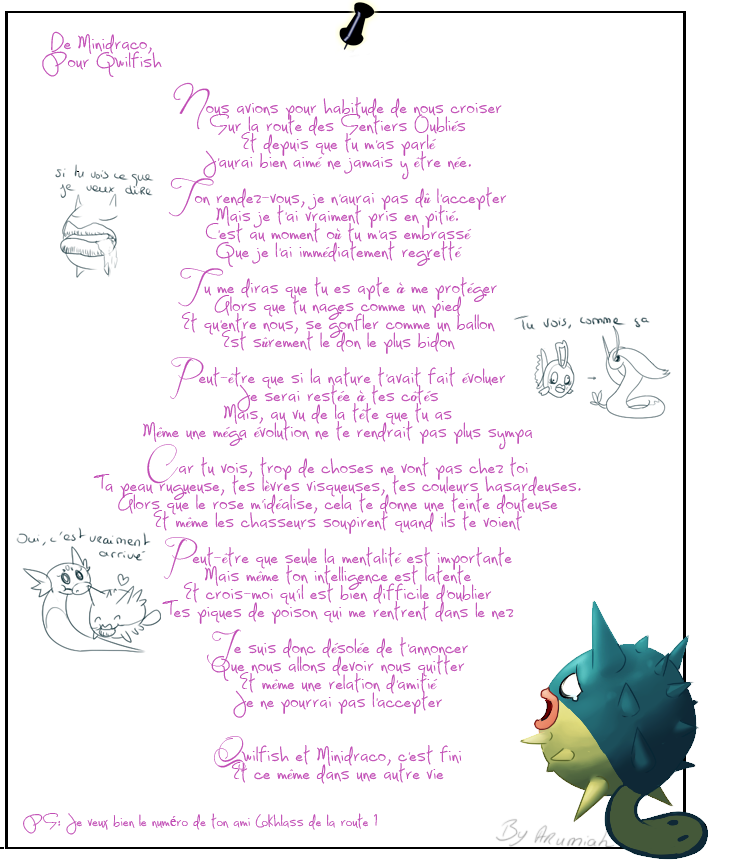 De Minidraco,
Pour Qwilfish
Nous avions pour habitude de nous croiser
Sur la route des Sentiers Oubliés
Et depuis que tu m'as parlé
J'aurai bien aimé ne jamais y être née.
si tu vois ce que
je veux dire
Ton rendez-vous, je n'aurai pas dû l'accepter
Mais je t'ai vraiment pris en pitié.
C'est au moment où tu m'as embrassé
Que je l'ai immédiatement regretté
Tu me diras que tu es apte à me protéger
Alors que tu nages comme un pied
Et qu'entre nous, se gonfler comme un ballon
Est sûrement le don le plus bidon
Tu vois, comme ça
Peut-être que si la nature t'avait fait évoluer
Je serai restée à tes côtés
Mais, au vu de la tête que tu as
Même une méga évolution ne te rendrait pas plus sympa
Car tu vois, trop de choses ne vont pas chez toi
Ta peau rugueuse, tes lèvres visqueuses, tes couleurs hasardeuses.
Alors que le rose m'idéalise, cela te donne une teinte douteuse
Et même les chasseurs soupirent quand ils te voient
Oui, c'est vraiment
arrivé
Peut-être que seule la mentalité est importante
Mais même ton intelligence est latente
Et crois-moi qu'il est bien difficile d'oublier
Tes piques de poison qui me rentrent dans le nez
Je suis donc désolée de t'annoncer
Que nous allons devoir nous quitter
Et même une relation d'amitié
Je ne pourrai pas l'accepter
Qwilfish et Minidraco, c'est fini
Et ce même dans une autre vie
PS: Je veux bien le numéro de ton ami Lokhlass de la route 1
By Arumiah